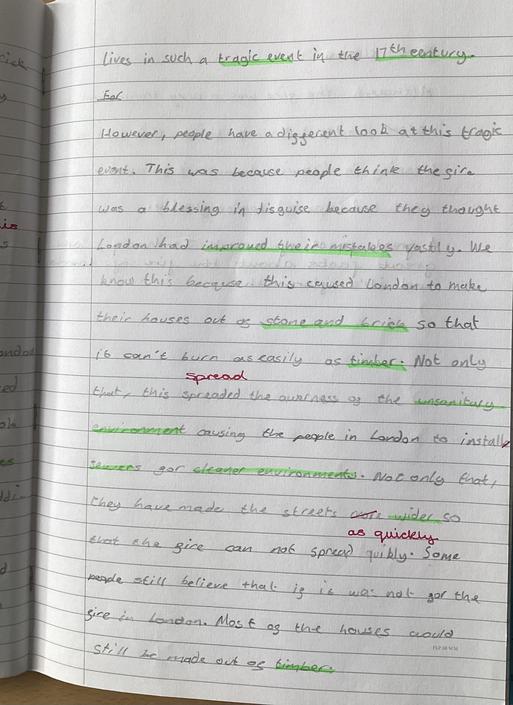 lives in such a tragic event in the 17th century.
However, people have a different look at this tragic
event. This was because people think the fire
was a blessing in disguise because they thought
London had improved their mistakes vastly. We
know this because this caused London to make
their houses out of stone and brick so that
it can't burn as easily as timber. Not only
spread
that, this spreaded the awarness of the unsanitary
environment causing the people in London to install
sewers for cleaner environments. Not only that,
they have made the streets more wider so
as quickly
that the fire can not spread quikly. Some
people still believe that if it was not for the
fire in London. Most of the houses would
still be made out of timber.